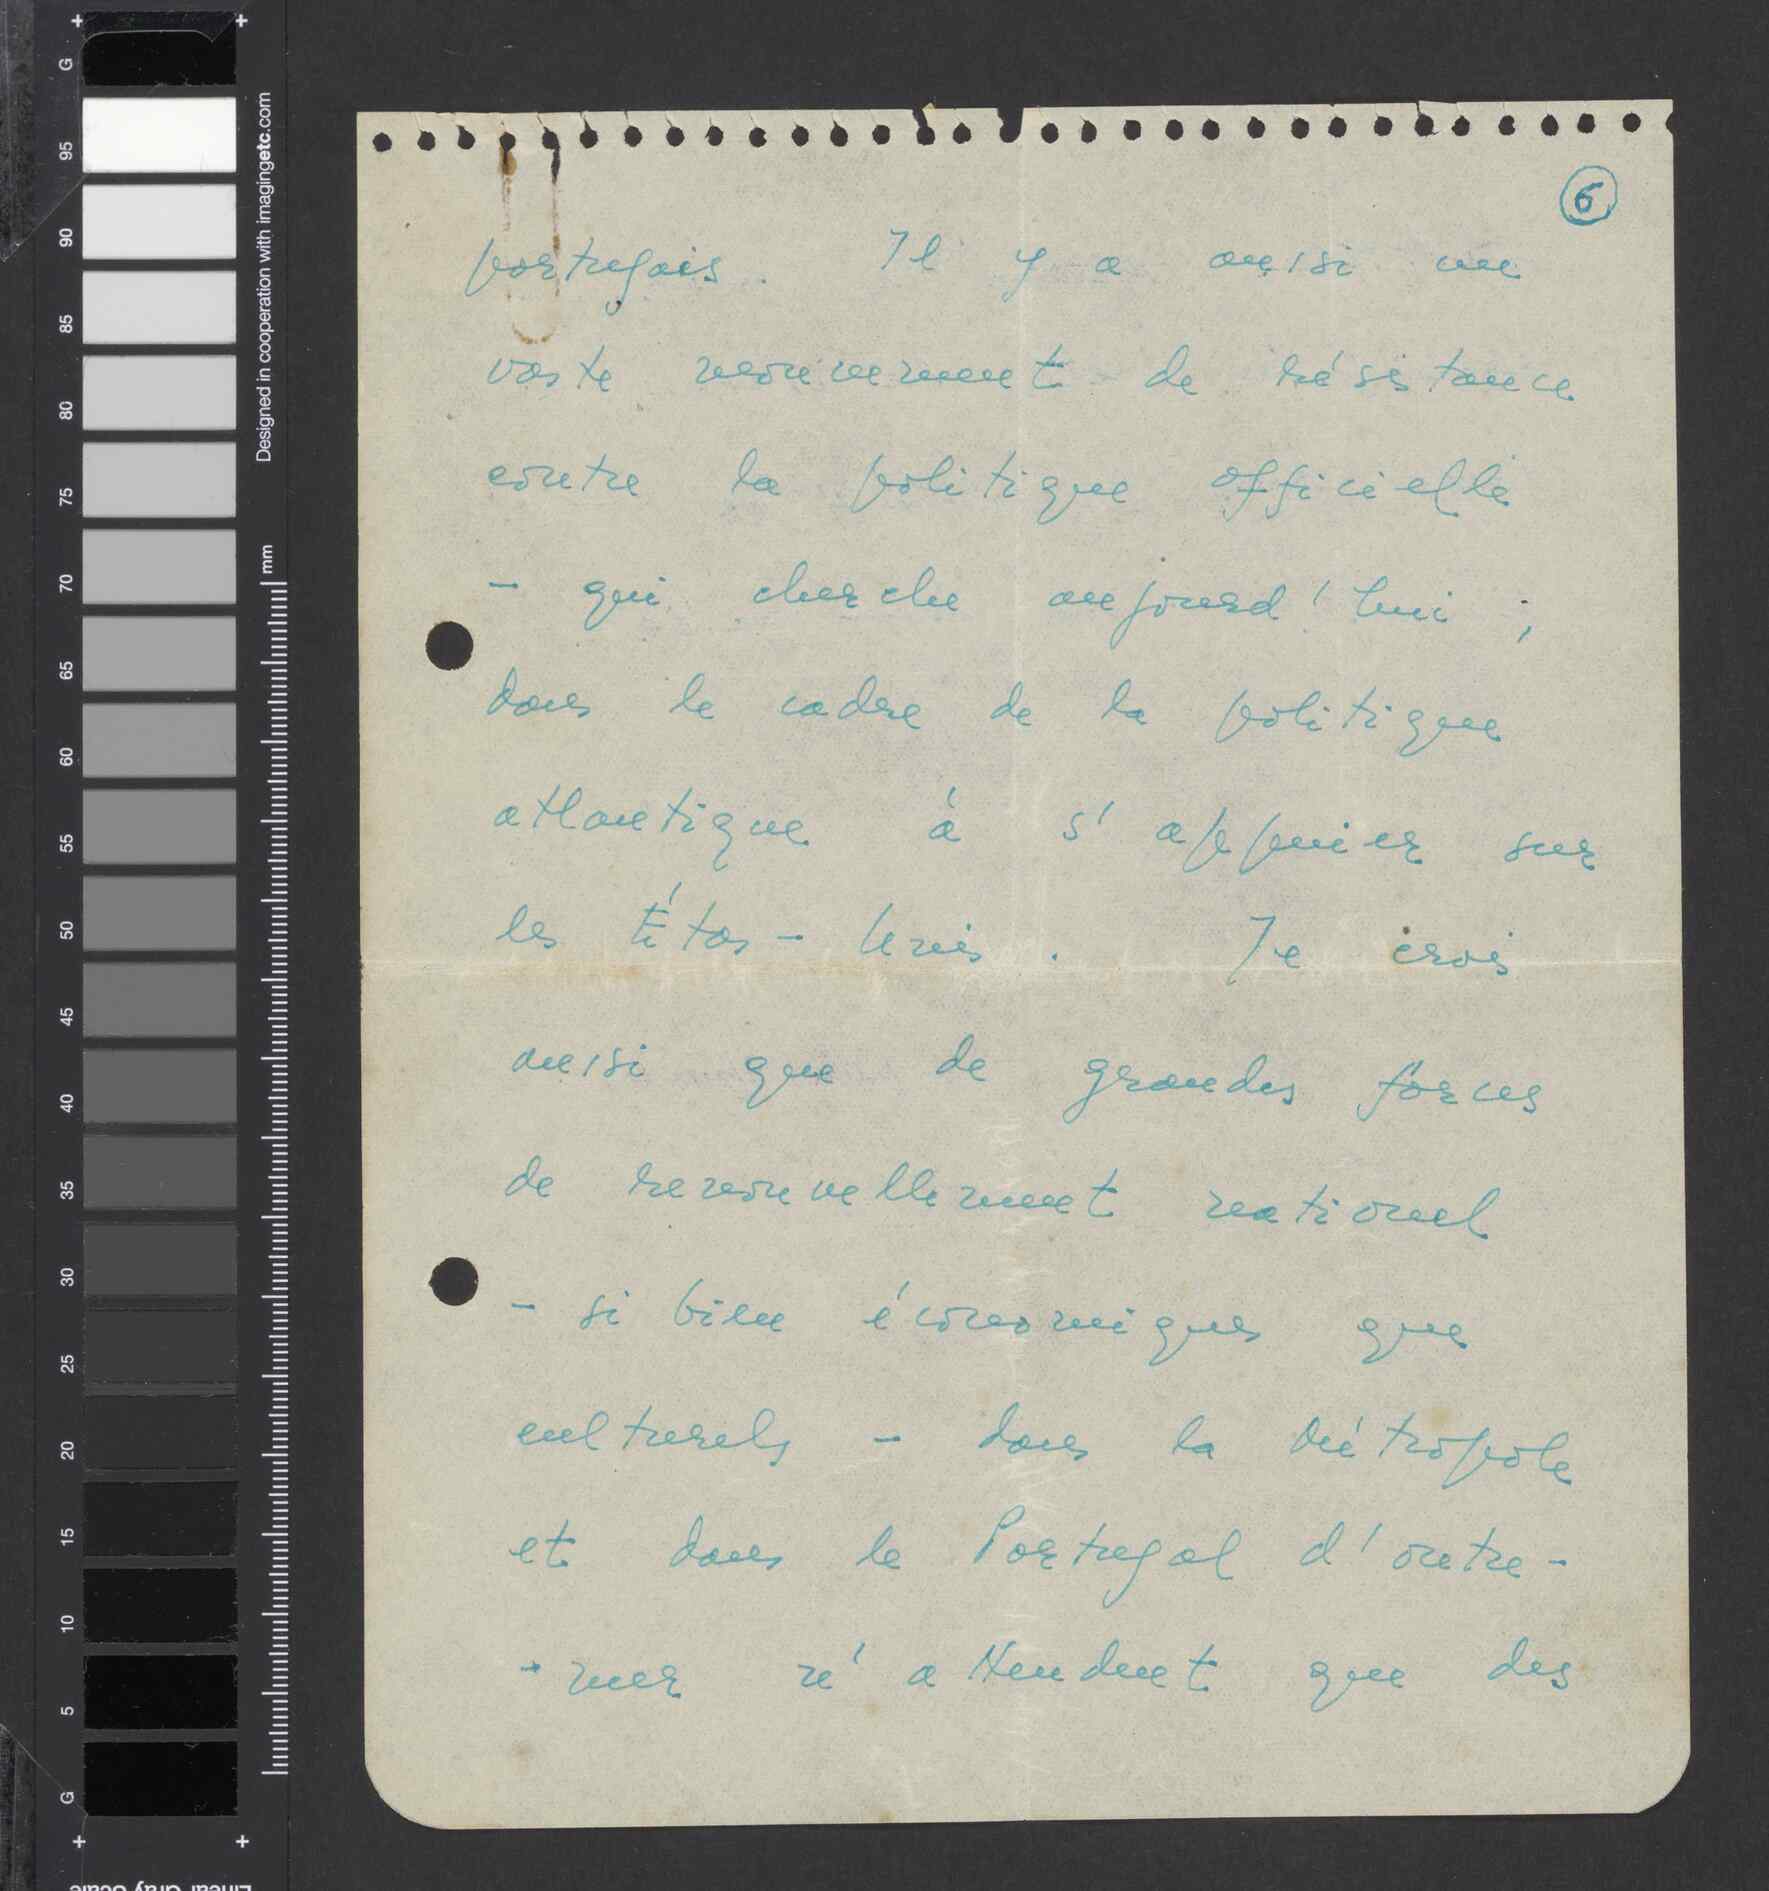 G
95
90
85
80
75
70
65
60
55
50
45
40
35
30
25
20
15
10
5
G
Designed in cooperation with imagingetc.com
mm
6
portugais. Il y a aussi un
vaste mouvement de résistance
contre la politique officielle
- qui cherche aujourd'hui,
dans le cadre de la politique
atlantique à s'appuier sur
les Étas-Unis. Je crois
aussi que de grandes forces
de renouvellement national
- si bien économiques que
culturels - dans la Métropole
et dans le Portugal d'outre-
-mer n'attendent que des